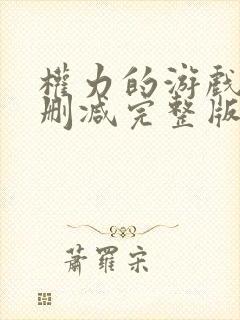 權力的游戲
刪减完整版
蕭羅宋